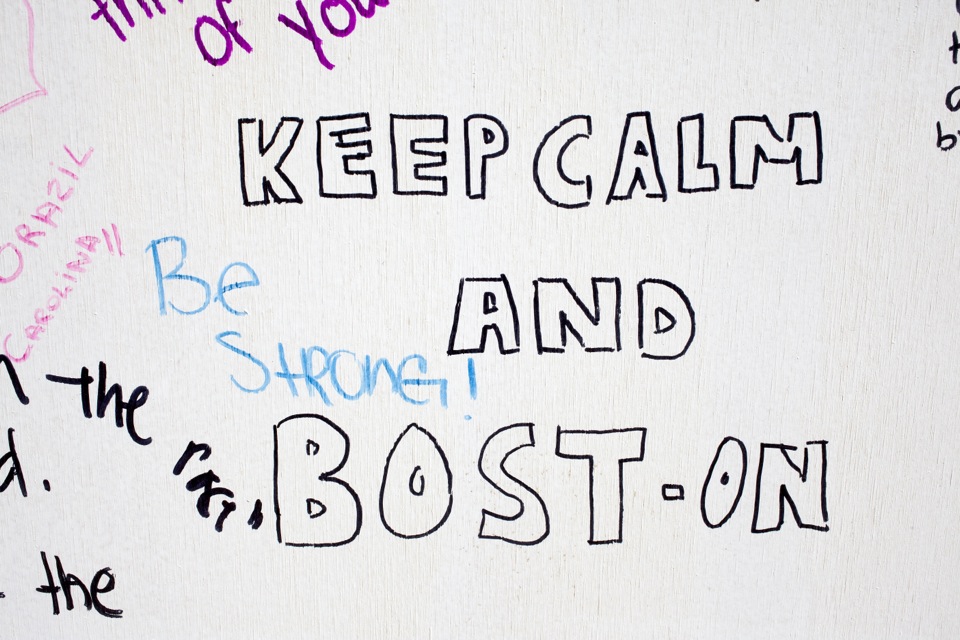 of you
KEEP CALM
AND
BOST-ON
Be
STRONG!
CAROLINA!!
the
d.
the